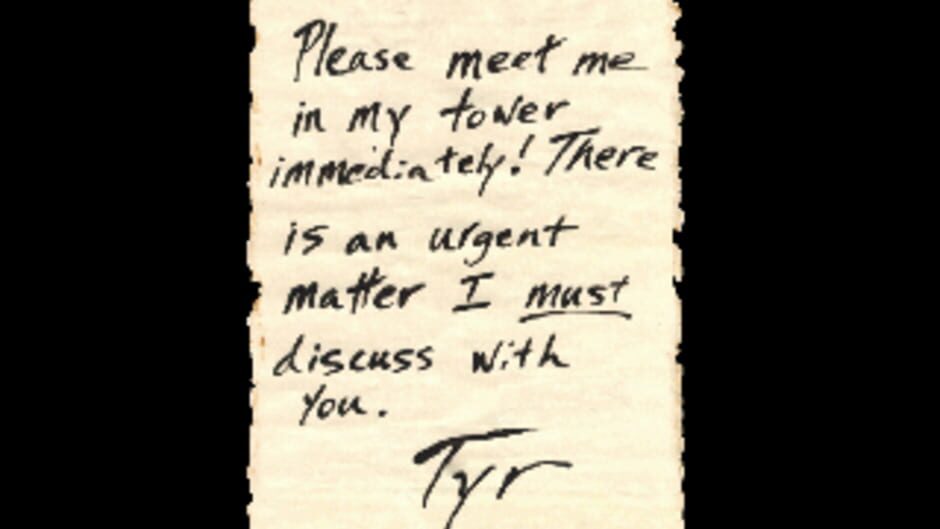 Please meet me
in my tower
immediately! There
is an urgent
matter I must
discuss with
you.
Tyr